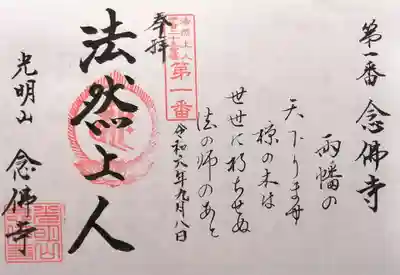 第一番 念佛寺
両幡の
天下ります
椋の木は
世世に朽ちせぬ
法の師のあと
令和六年九月八日
第一番
法然上人
奉拝
法然上人
光明山 念佛寺